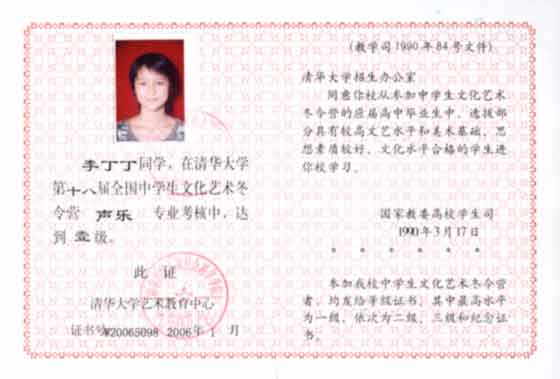 李丁丁同学，在清华大学
第十八届全国中学生文化艺术冬
令营 声乐 专业考核中，达
到 壹级。
此 证
清华大学艺术教育中心
证书号W20065098 2006年1 月
(教学司1990年84号文件)
清华大学招生办公室
同意你校从参加中学生文化艺术
冬令营的应届高中毕业生中，选拔部
分具有较高文艺水平和美术基础，思
想素质较好、文化水平合格的学生进
你校学习。
国家教委高校学生司
1990年3月17日
* * * * * *
参加我校中学生文化艺术冬令营
者，均发给等级证书，其中最高水平
为一级，依次为二级、三级和纪念证
书。